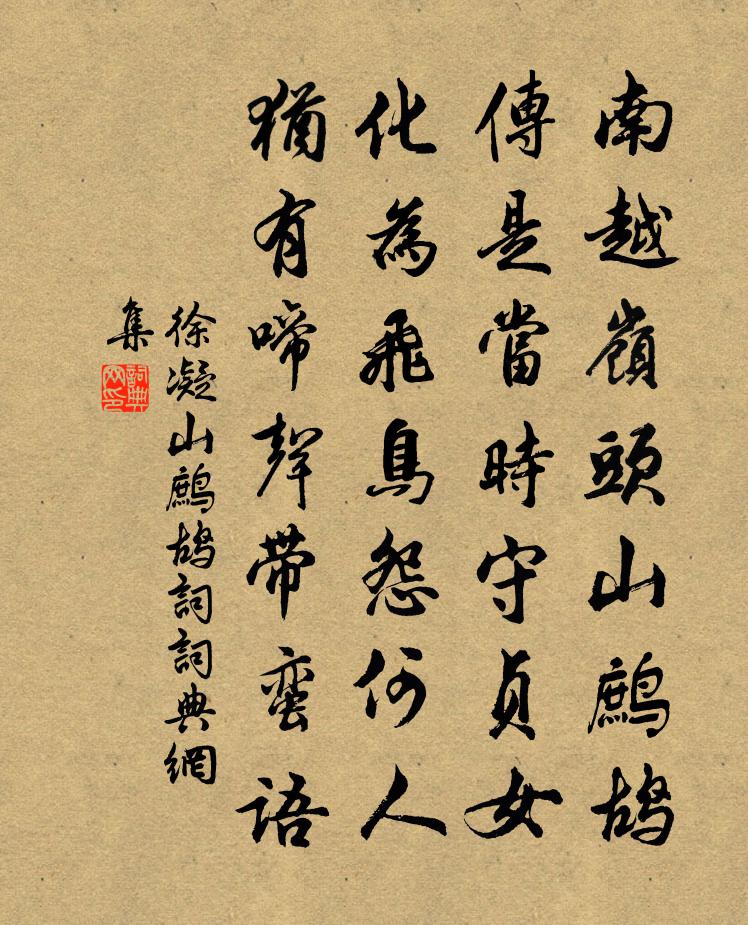 南越嶺頭山鷓鴣
傳是當時守貞女
化為飛鳥怨何人
猶有啼聲帶蛮語
徐凝山鷓鴣詞詞典網
集
詞典網印